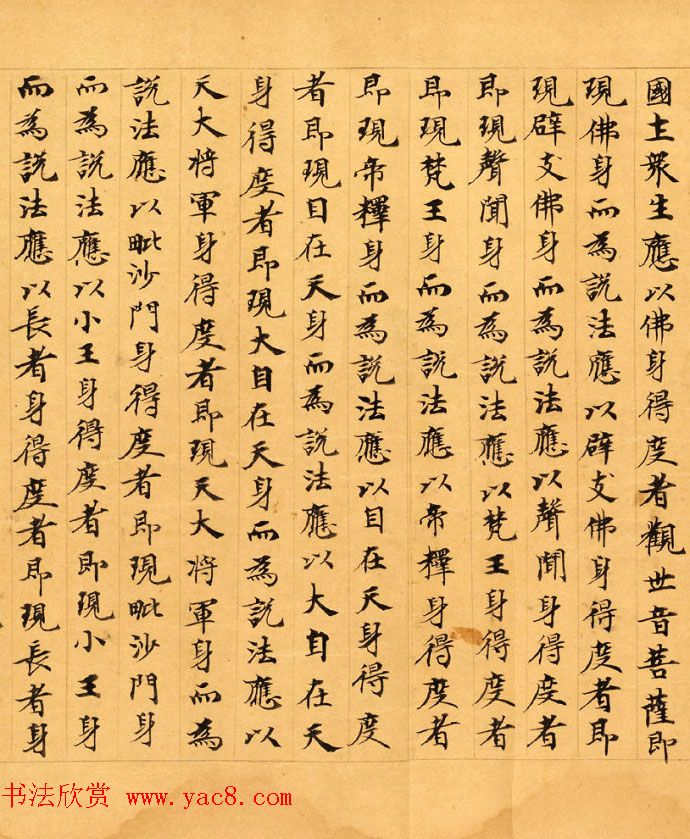 國土眾生應以佛身得度者觀世音菩薩即
現佛身而為說法應以辟支佛身得度者即
現辟支佛身而為說法應以聲聞身得度者
即現聲聞身而為說法應以梵王身得度者
即現梵王身而為說法應以帝釋身得度者
即現帝釋身而為說法應以自在天身得度
者即現自在天身而為說法應以大自在天
身得度者即現大自在天身而為說法應以
天大將軍身得度者即現天大將軍身而為
說法應以毗沙門身得度者即現毗沙門身
而為說法應以小王身得度者即現小王身
而為說法應以長者身得度者即現長者身
书法欣赏 www.yac8.com